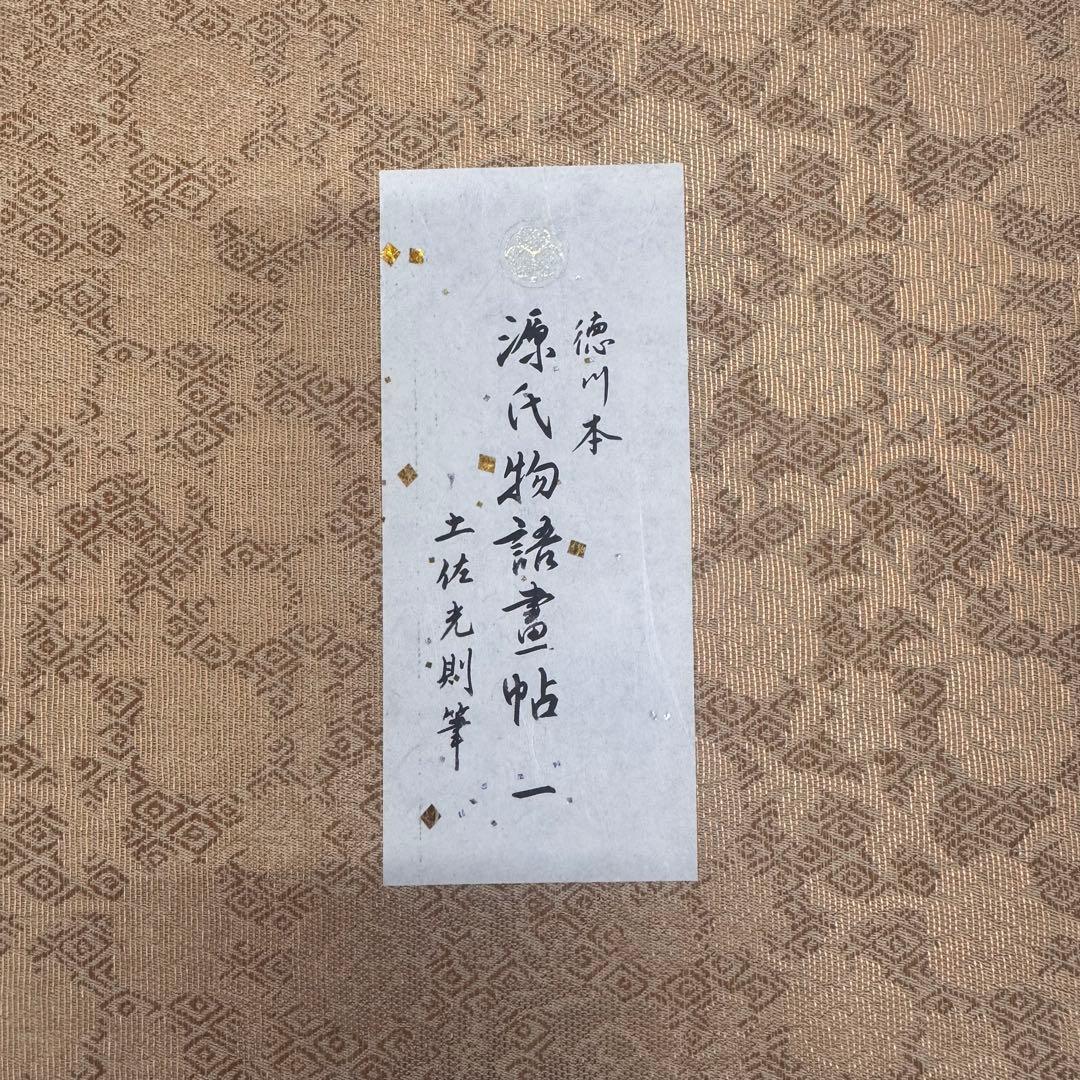 徳川本
源氏物語畫帖 一
土佐光則筆